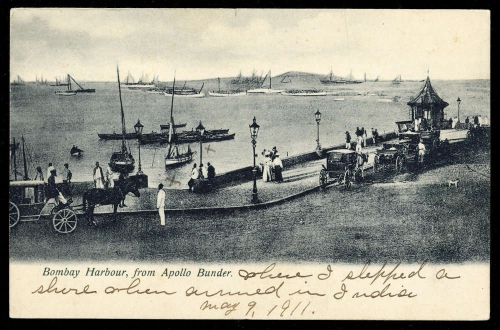 Bombay Harbour, from Apollo Bunder. where I stepped a
shore when arrived in India
may 9, 1911.